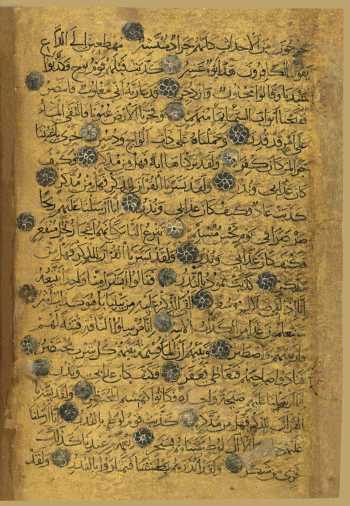 يخرجون من الأجداث كأنهم جراد منتشر مهطعين إلى الداع
يقول الكافرون هذا يوم عسر كذبت قبلهم قوم نوح فكذبوا
عبدنا وقالوا مجنون وازدجر فدعا ربه أني مغلوب فانتصر
ففتحنا أبواب السماء بماء منهمر وفجرنا الأرض عيونا فالتقى الماء
على أمر قد قدر وحملناه على ذات ألواح ودسر تجري بأعيننا
جزاء لمن كان كفر ولقد تركناها آية فهل من مدكر فكيف
كان عذابي ونذر ولقد يسرنا القرآن للذكر فهل من مدكر
كذبت عاد فكيف كان عذابي ونذر إنا أرسلنا عليهم ريحا
صرصرا في يوم نحس مستمر تنزع الناس كأنهم أعجاز نخل منقعر
فكيف كان عذابي ونذر ولقد يسرنا القرآن للذكر فهل من
مدكر كذبت ثمود بالنذر فقالوا أبشرا منا واحدا نتبعه
إنا إذا لفي ضلال وسعر أألقي الذكر عليه من بيننا بل هو كذاب أشر
سيعلمون غدا من الكذاب الأشر إنا مرسلو الناقة فتنة لهم
فارتقبهم واصطبر ونبئهم أن الماء قسمة بينهم كل شرب محتضر
فنادوا صاحبهم فتعاطى فعقر فكيف كان عذابي ونذر
إنا أرسلنا عليهم صيحة واحدة فكانوا كهشيم المحتظر ولقد يسرنا
القرآن للذكر فهل من مدكر كذبت قوم لوط بالنذر إنا أرسلنا
عليهم حاصبا إلا آل لوط نجيناهم بسحر نعمة من عندنا كذلك
نجزي من شكر ولقد أنذرهم بطشتنا فتماروا بالنذر ولقد